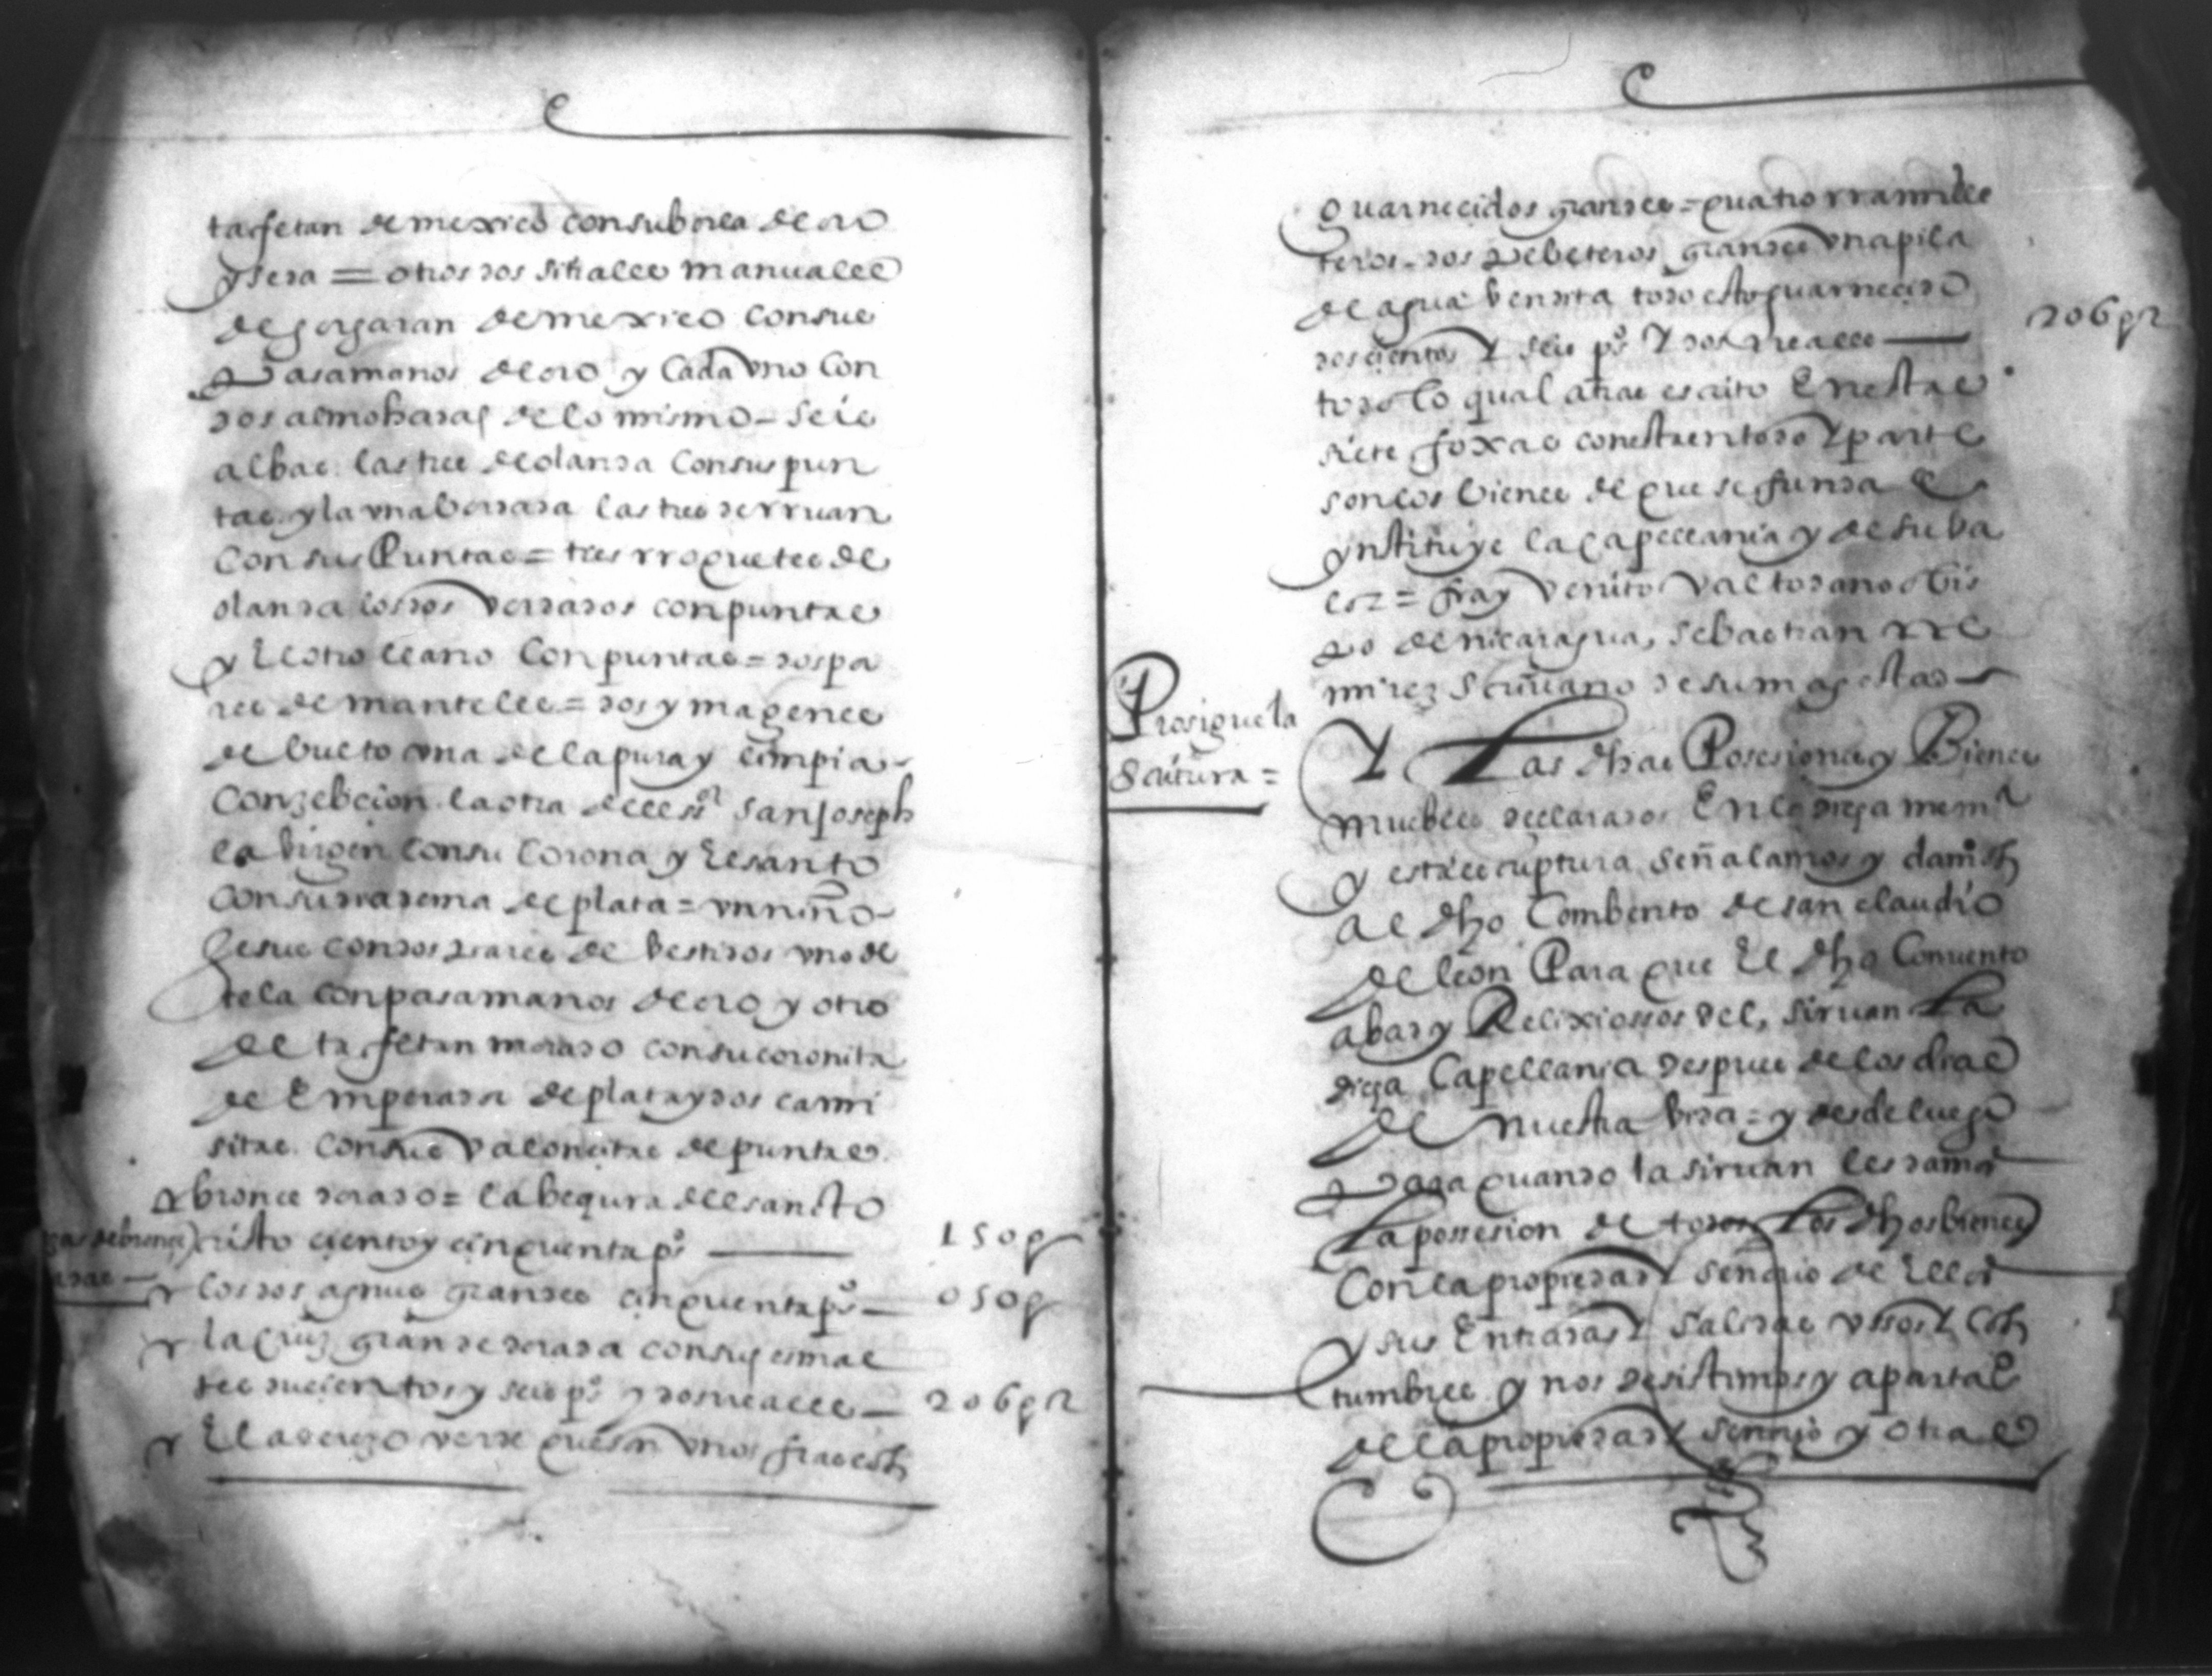 tafetan de mexico con su borla de oro
y seda = otros dos sitiales manuales
de gorgaran de mexico con sus
pasamanos de oro y Cada vno Con
dos almohadas de lo mismo = seis
albas las tres de olanda Con sus pun
tas y la vna bordada las tres de rruan
Con sus Puntas = tres rroquetes de
olanda los dos vordados con puntas
y El otro llano Con puntas = dos pa
res de manteles = dos ymagenes
de bulto vna de la pura y limpia
Conzebcion la otra de el sr san Joseph
la birgen con su Corona y El santo
Con su diadema de plata = vn niño
Jesus con dos pares de bestidos vno de
tela con pasamanos de oro y otro
de tafetan morado con su coronita
de Emperador de plata y dos cami
sitas con sus valonitas de puntas
bronce dorado = la bequra del sancto
cristo ciento y cinquenta ps 150 p
los dos agnus grandes cinquenta ps 050 p
la cruz grande dorada con sus esmal
tes ducientos y seis ps y dos rreales 206 p 2
El aderezo verde que son vnos frascos
guarnecidos grandes = quatro rramille
teros = dos pebeteros grandes vna pila
de agua bendita todo esto guarnecido
doscientos y seis ps y dos rreales 206 p 2
todo lo qual atras escrito En estas
siete foxas con esta en todo y parte
son los bienes de que se funda e
ynstituye la capellania y de su ba
lor = fray venito valtodano obis
po de nicaragua, sebastian rra
mirez Scriuano de su magestad
Prosigue la
Scritura =
Y Las dhas Posesiones y Bienes
muebles declarados En la dicha mema
y esta escriptura señalamos y damos
al dho Combento de san claudio
de leon Para que El dho Conuento
abad y Relixiossos del, siruan La
dicha Capellania despues de los dias
de nuestra bida = y desde luego
para quando la siruan les damos
La possesion de todos Los dhos bienes
Con la propiedad y señorio de Ellos
y sus Entradas y salidas vssos y cos
tumbres y nos desistimos y apartamos
de la propiedad y señorio y otras